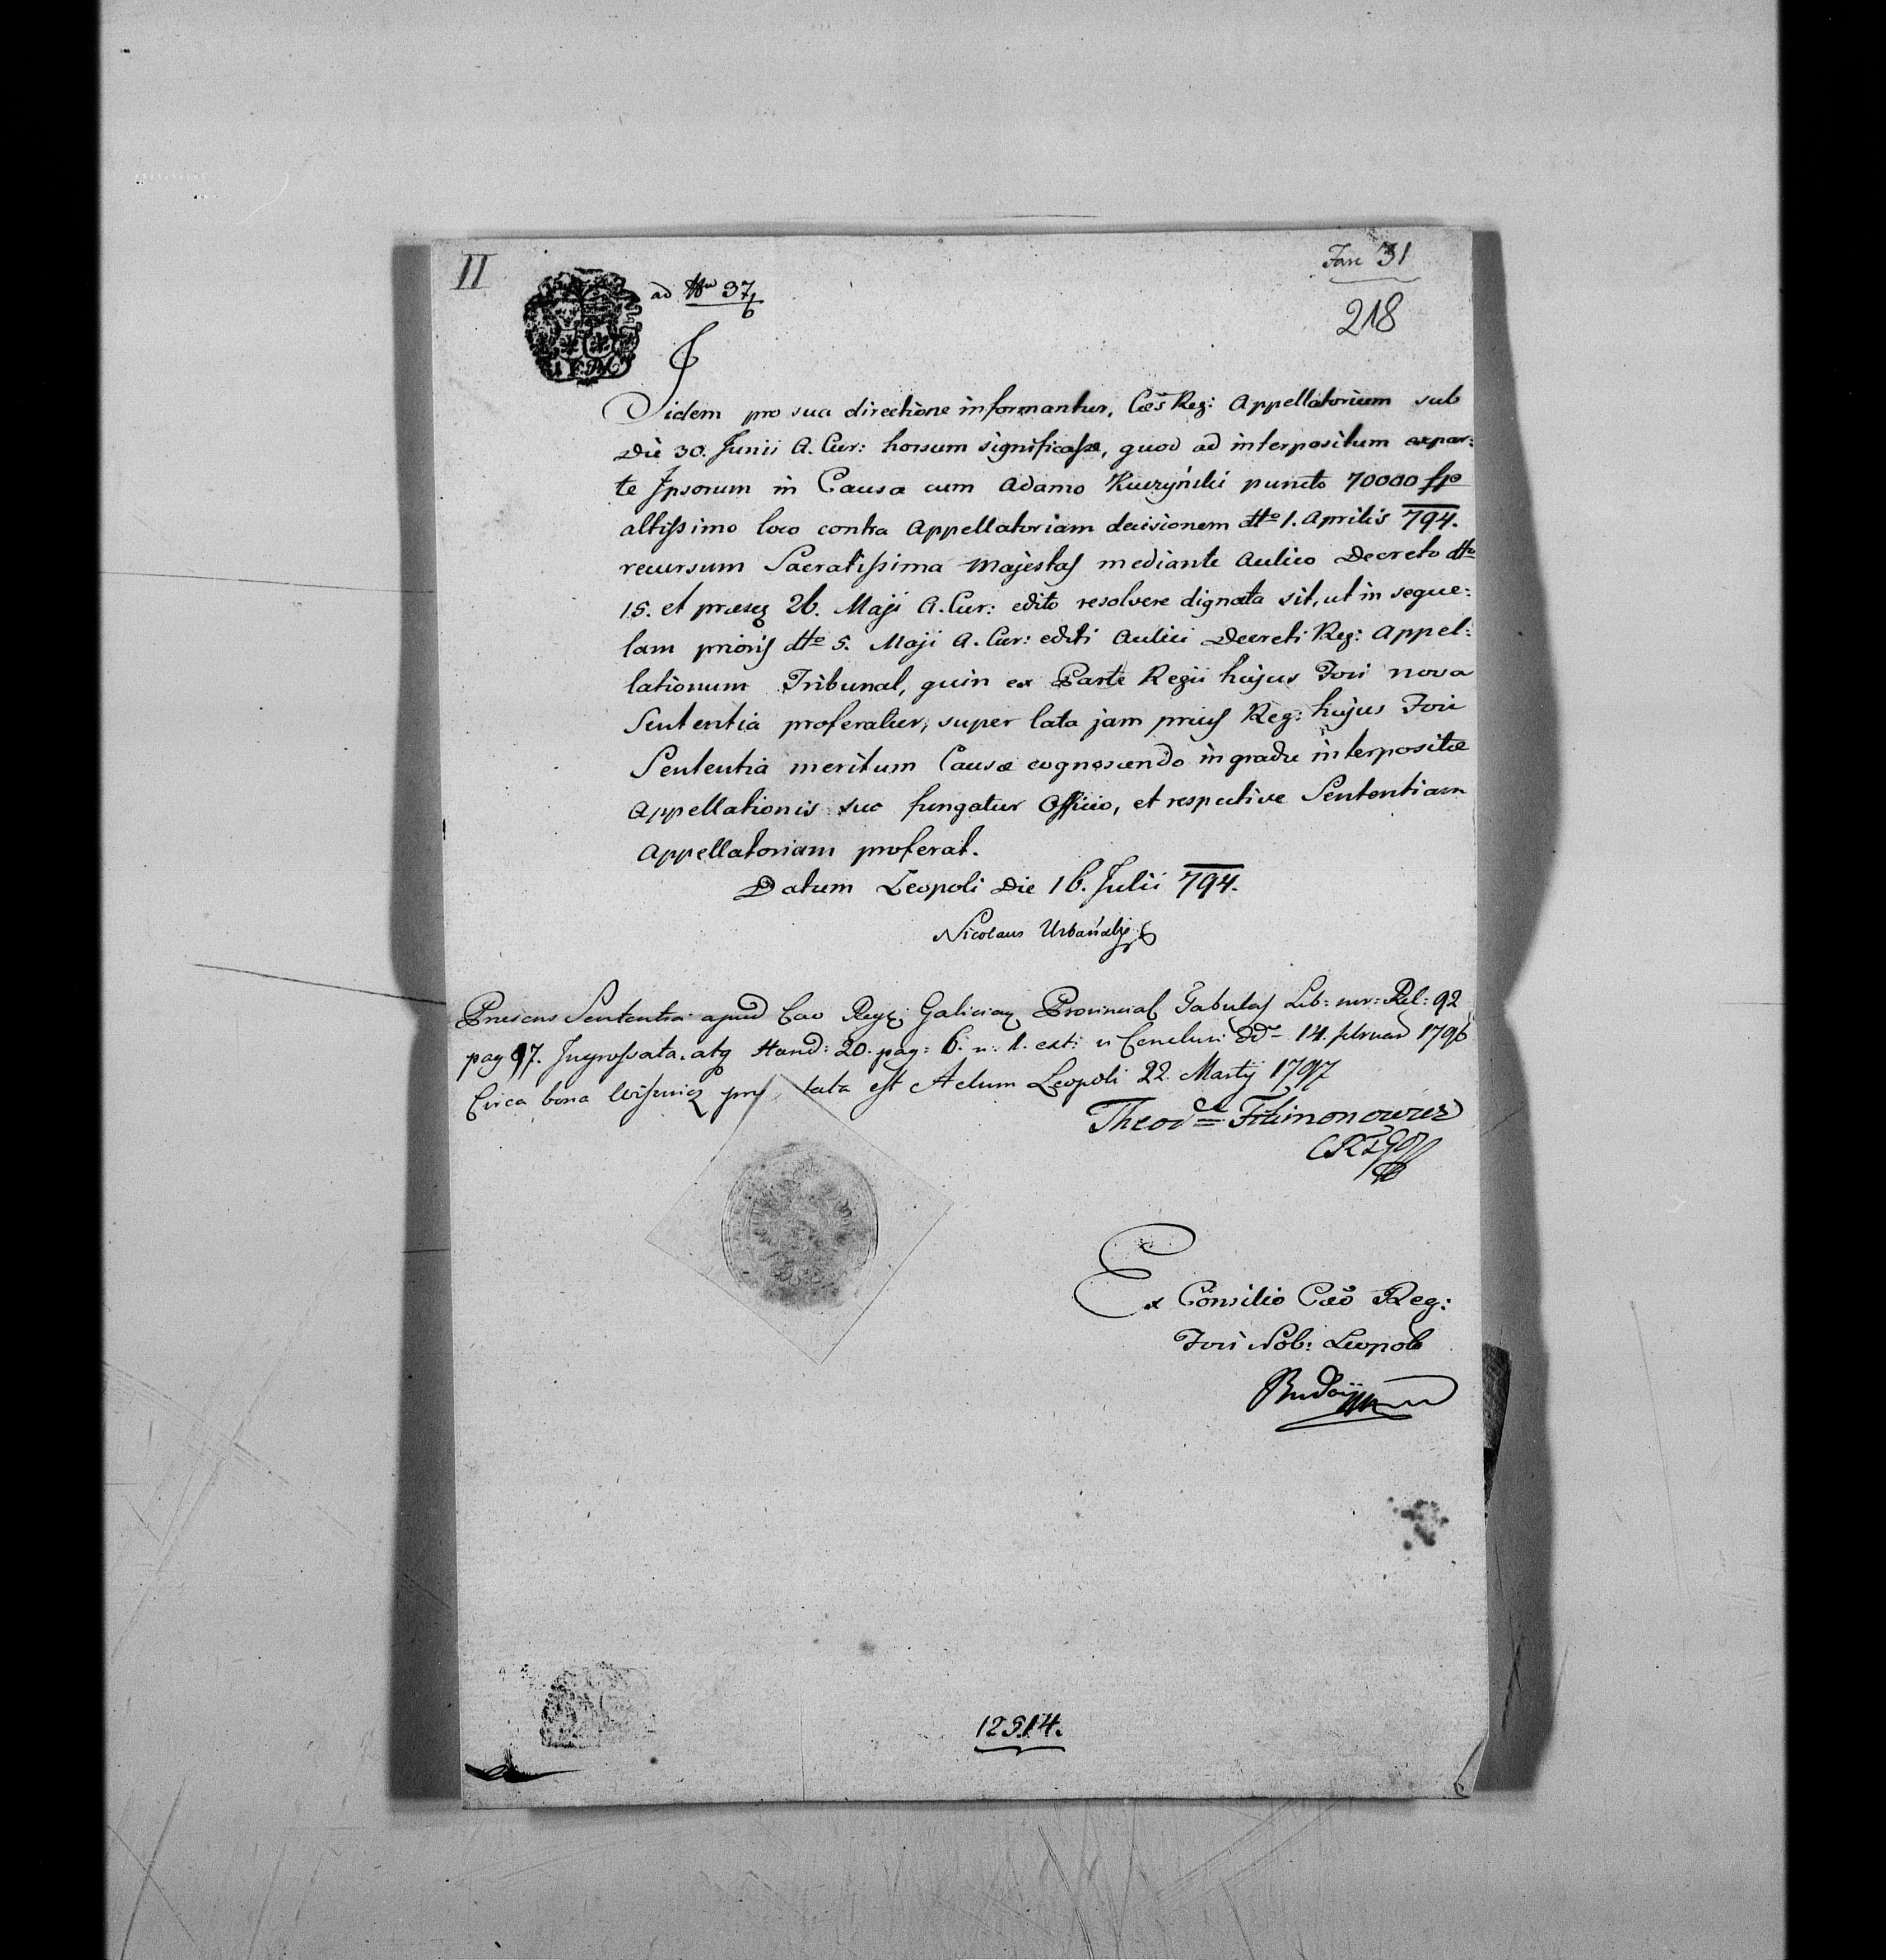 II
ad Nrū 37/6
Fasc 31
218
Iidem pro sua directione informantur, Cæs̄ Reg: Appellatorium sub
Die 30. Junii A. Cur: horsum significasse, quod ad interpositum expar:
te Ipsorum in Causa cum Adamo Kuczyński puncto 70000 fp
altissimo loco contra Appellatoriam decisionem dtto 1. Aprilis 794.
recursum Sacratissima Majestas mediante Aulico Decreto dtto
15. et præseq 26. Maji A. Cur: edito resolvere dignata sit, ut in seque:
lam prioris dtto 5. Maji A. Cur: editi Aulici Decreti Reg: Appel:
lationum Tribunal, quin ex Parte Regii hujus Fori nova
Sententia proferatur, super lata jam prius Reg: hujus Fori
Sententia meritum Causæ cognoscendo in gradu interpositæ
Appellationis suo fungatur Officio, et respective Sententiam
Appellatoriam proferat.
Datum Leopoli Die 16. Julii 794.
Nicolaus
Præsens Sententia apud Cæo Reg: Galiciæ Provincial Tabulas Lib: Rel: 92
pag 97. Ingrossata. atq Hæred: 20. pag: 6. n. 1. ext: Conclusi 14. februar 1796
Circa bona lata est Actum Leopoli 22. Martij 1797
Ex Consilio Cæo Reg:
Fori Nob: Leopol
12514.